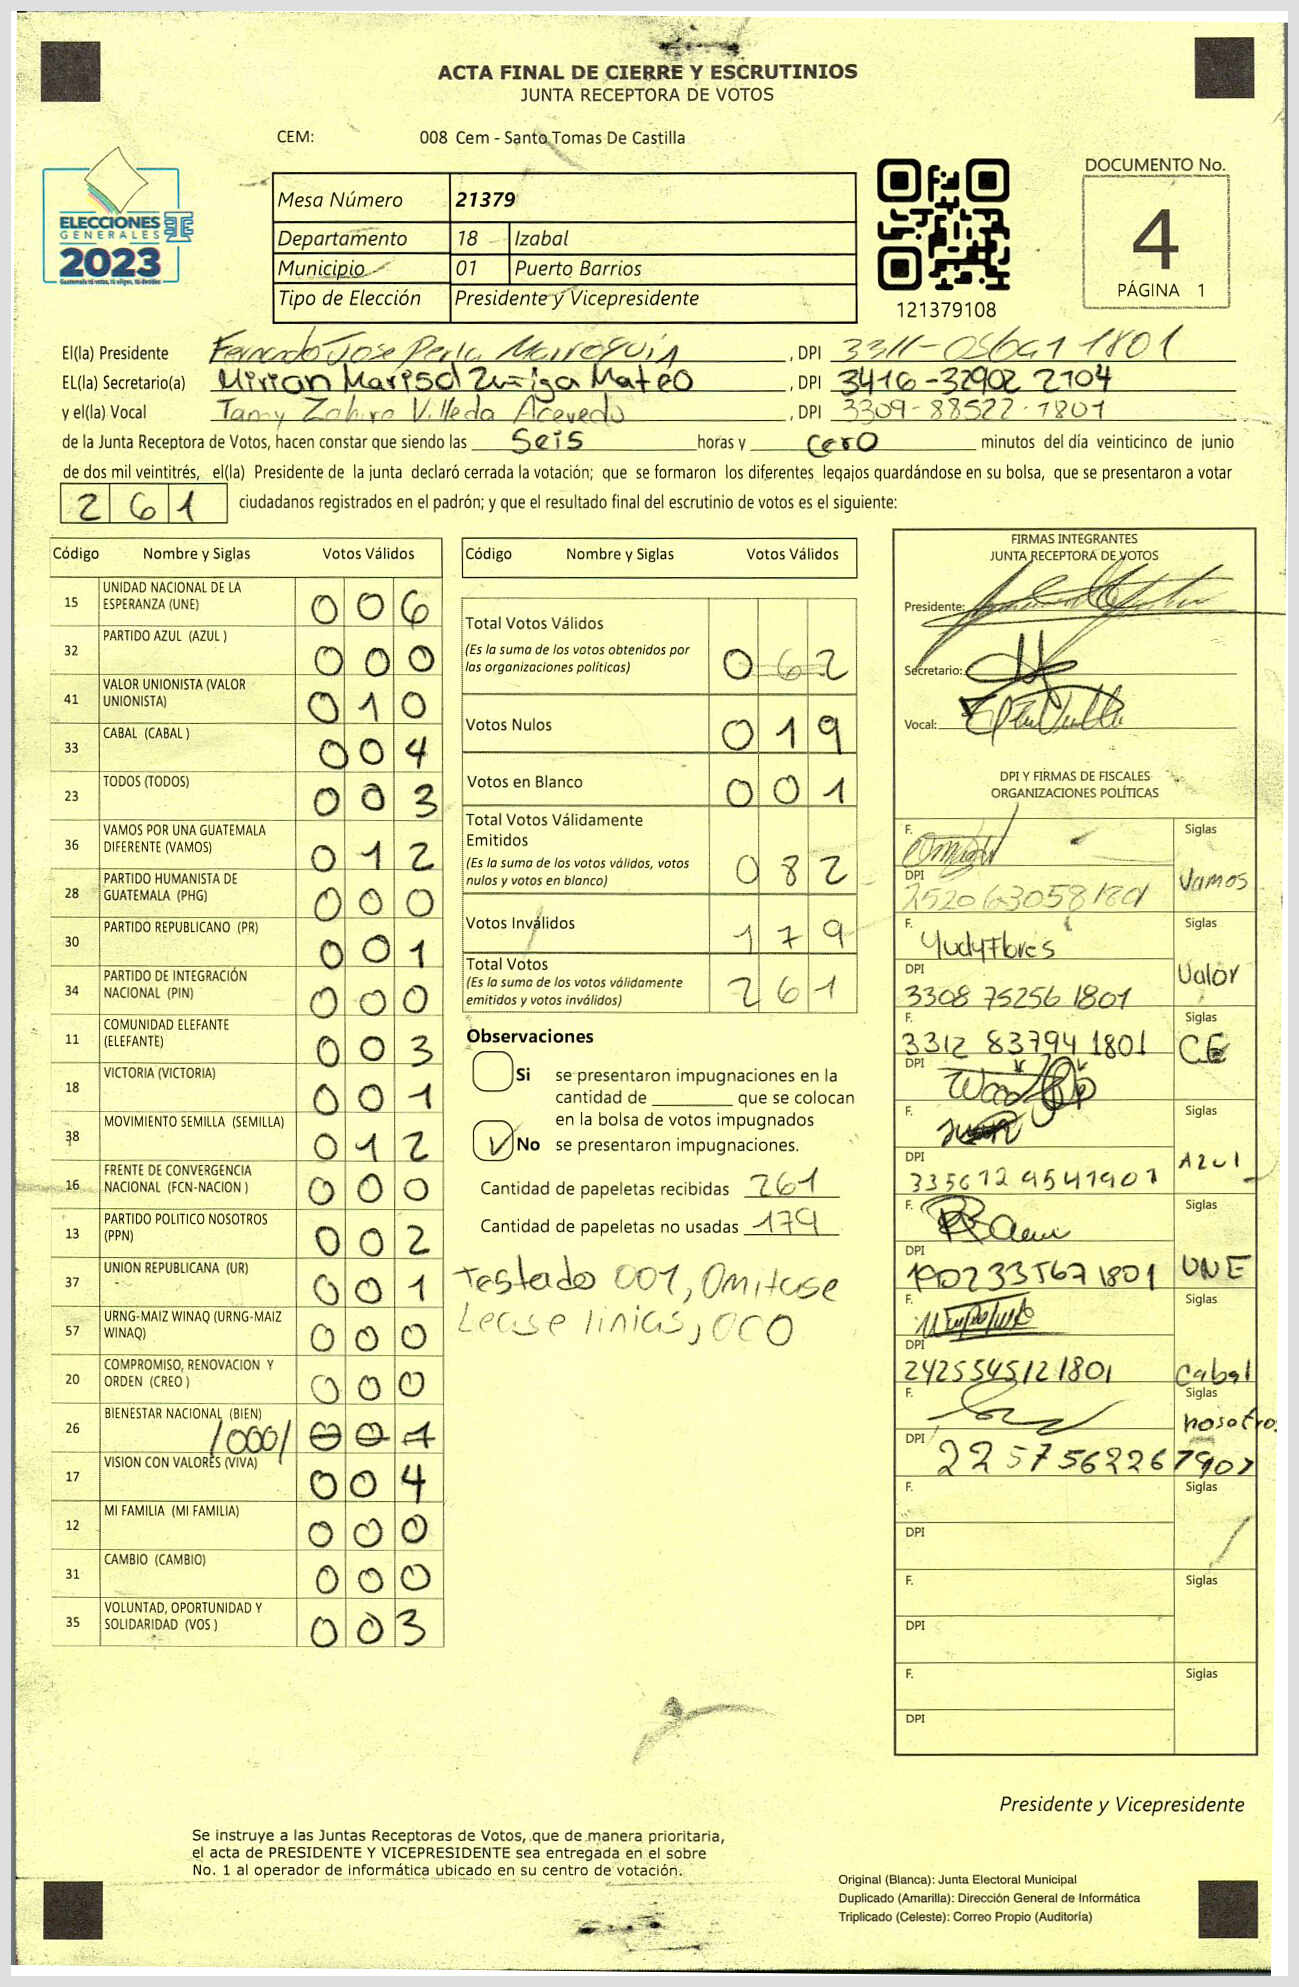 ACTA FINAL DE CIERRE Y ESCRUTINIOS
JUNTA RECEPTORA DE VOTOS
CEM: 008 Cem - Santo Tomas De Castilla
ELECCIONES
GENERALES
2023
Mesa Número 21379
Departamento 18 Izabal
Municipio 01 Puerto Barrios
Tipo de Elección Presidente y Vicepresidente
121379108
DOCUMENTO No.
4
PÁGINA 1
El(la) Presidente Fernando Jose Perla Marroquin, DPI
EL(la) Secretario(a) Mirian Marisol Zuñiga Mateo, DPI 3416-32902 2104
y el(la) Vocal Villeda Acevedo, DPI 3309-88522-1801
de la Junta Receptora de Votos, hacen constar que siendo las Seis horas y cero minutos del día veinticinco de junio
de dos mil veintitrés, el(la) Presidente de la junta declaró cerrada la votación; que se formaron los diferentes legajos quardándose en su bolsa, que se presentaron a votar
261 ciudadanos registrados en el padrón; y que el resultado final del escrutinio de votos es el siguiente:
Código Nombre y Siglas Votos Válidos
15 UNIDAD NACIONAL DE LA ESPERANZA (UNE) 006
32 PARTIDO AZUL (AZUL ) 000
41 VALOR UNIONISTA (VALOR UNIONISTA) 010
33 CABAL (CABAL ) 004
23 TODOS (TODOS) 003
36 VAMOS POR UNA GUATEMALA DIFERENTE (VAMOS) 012
28 PARTIDO HUMANISTA DE GUATEMALA (PHG) 000
30 PARTIDO REPUBLICANO (PR) 001
34 PARTIDO DE INTEGRACIÓN NACIONAL (PIN) 000
11 COMUNIDAD ELEFANTE (ELEFANTE) 003
18 VICTORIA (VICTORIA) 001
38 MOVIMIENTO SEMILLA (SEMILLA) 012
16 FRENTE DE CONVERGENCIA NACIONAL (FCN-NACION ) 000
13 PARTIDO POLITICO NOSOTROS (PPN) 002
37 UNION REPUBLICANA (UR) 001
57 URNG-MAIZ WINAQ (URNG-MAIZ WINAQ) 000
20 COMPROMISO, RENOVACION Y ORDEN (CREO ) 000
26 BIENESTAR NACIONAL (BIEN) /000/ 001
17 VISION CON VALORES (VIVA) 004
12 MI FAMILIA (MI FAMILIA) 000
31 CAMBIO (CAMBIO) 000
35 VOLUNTAD, OPORTUNIDAD Y SOLIDARIDAD (VOS ) 003
Código Nombre y Siglas Votos Válidos
Total Votos Válidos 062
(Es la suma de los votos obtenidos por
las organizaciones políticas)
Votos Nulos 019
Votos en Blanco 001
Total Votos Válidamente
Emitidos 082
(Es la suma de los votos válidos, votos
nulos y votos en blanco)
Votos Inválidos 179
Total Votos 261
(Es la suma de los votos válidamente
emitidos y votos inválidos)
Observaciones
Si se presentaron impugnaciones en la
cantidad de ________ que se colocan
en la bolsa de votos impugnados
No se presentaron impugnaciones.
Cantidad de papeletas recibidas 261
Cantidad de papeletas no usadas 179
Testado 001, Omitase
Lease linias, 000
FIRMAS INTEGRANTES
JUNTA RECEPTORA DE VOTOS
Presidente:
Secretario:
Vocal:
DPI Y FIRMAS DE FISCALES
ORGANIZACIONES POLÍTICAS
F. Siglas
DPI Vamos
F. Yudy Flores Siglas
DPI 3308 75256 1801 Valor
F. 3312 83794 1801 Siglas
DPI CE
F. Siglas
DPI Azul
F. Siglas
DPI 1902335671801 UNE
F. Siglas
DPI 2425545121801 Cabal
F. Siglas
DPI nosotros
F. Siglas
DPI
F. Siglas
DPI
F. Siglas
DPI
Presidente y Vicepresidente
Se instruye a las Juntas Receptoras de Votos, que de manera prioritaria,
el acta de PRESIDENTE Y VICEPRESIDENTE sea entregada en el sobre
No. 1 al operador de informática ubicado en su centro de votación.
Original (Blanca): Junta Electoral Municipal
Duplicado (Amarilla): Dirección General de Informática
Triplicado (Celeste): Correo Propio (Auditoría)